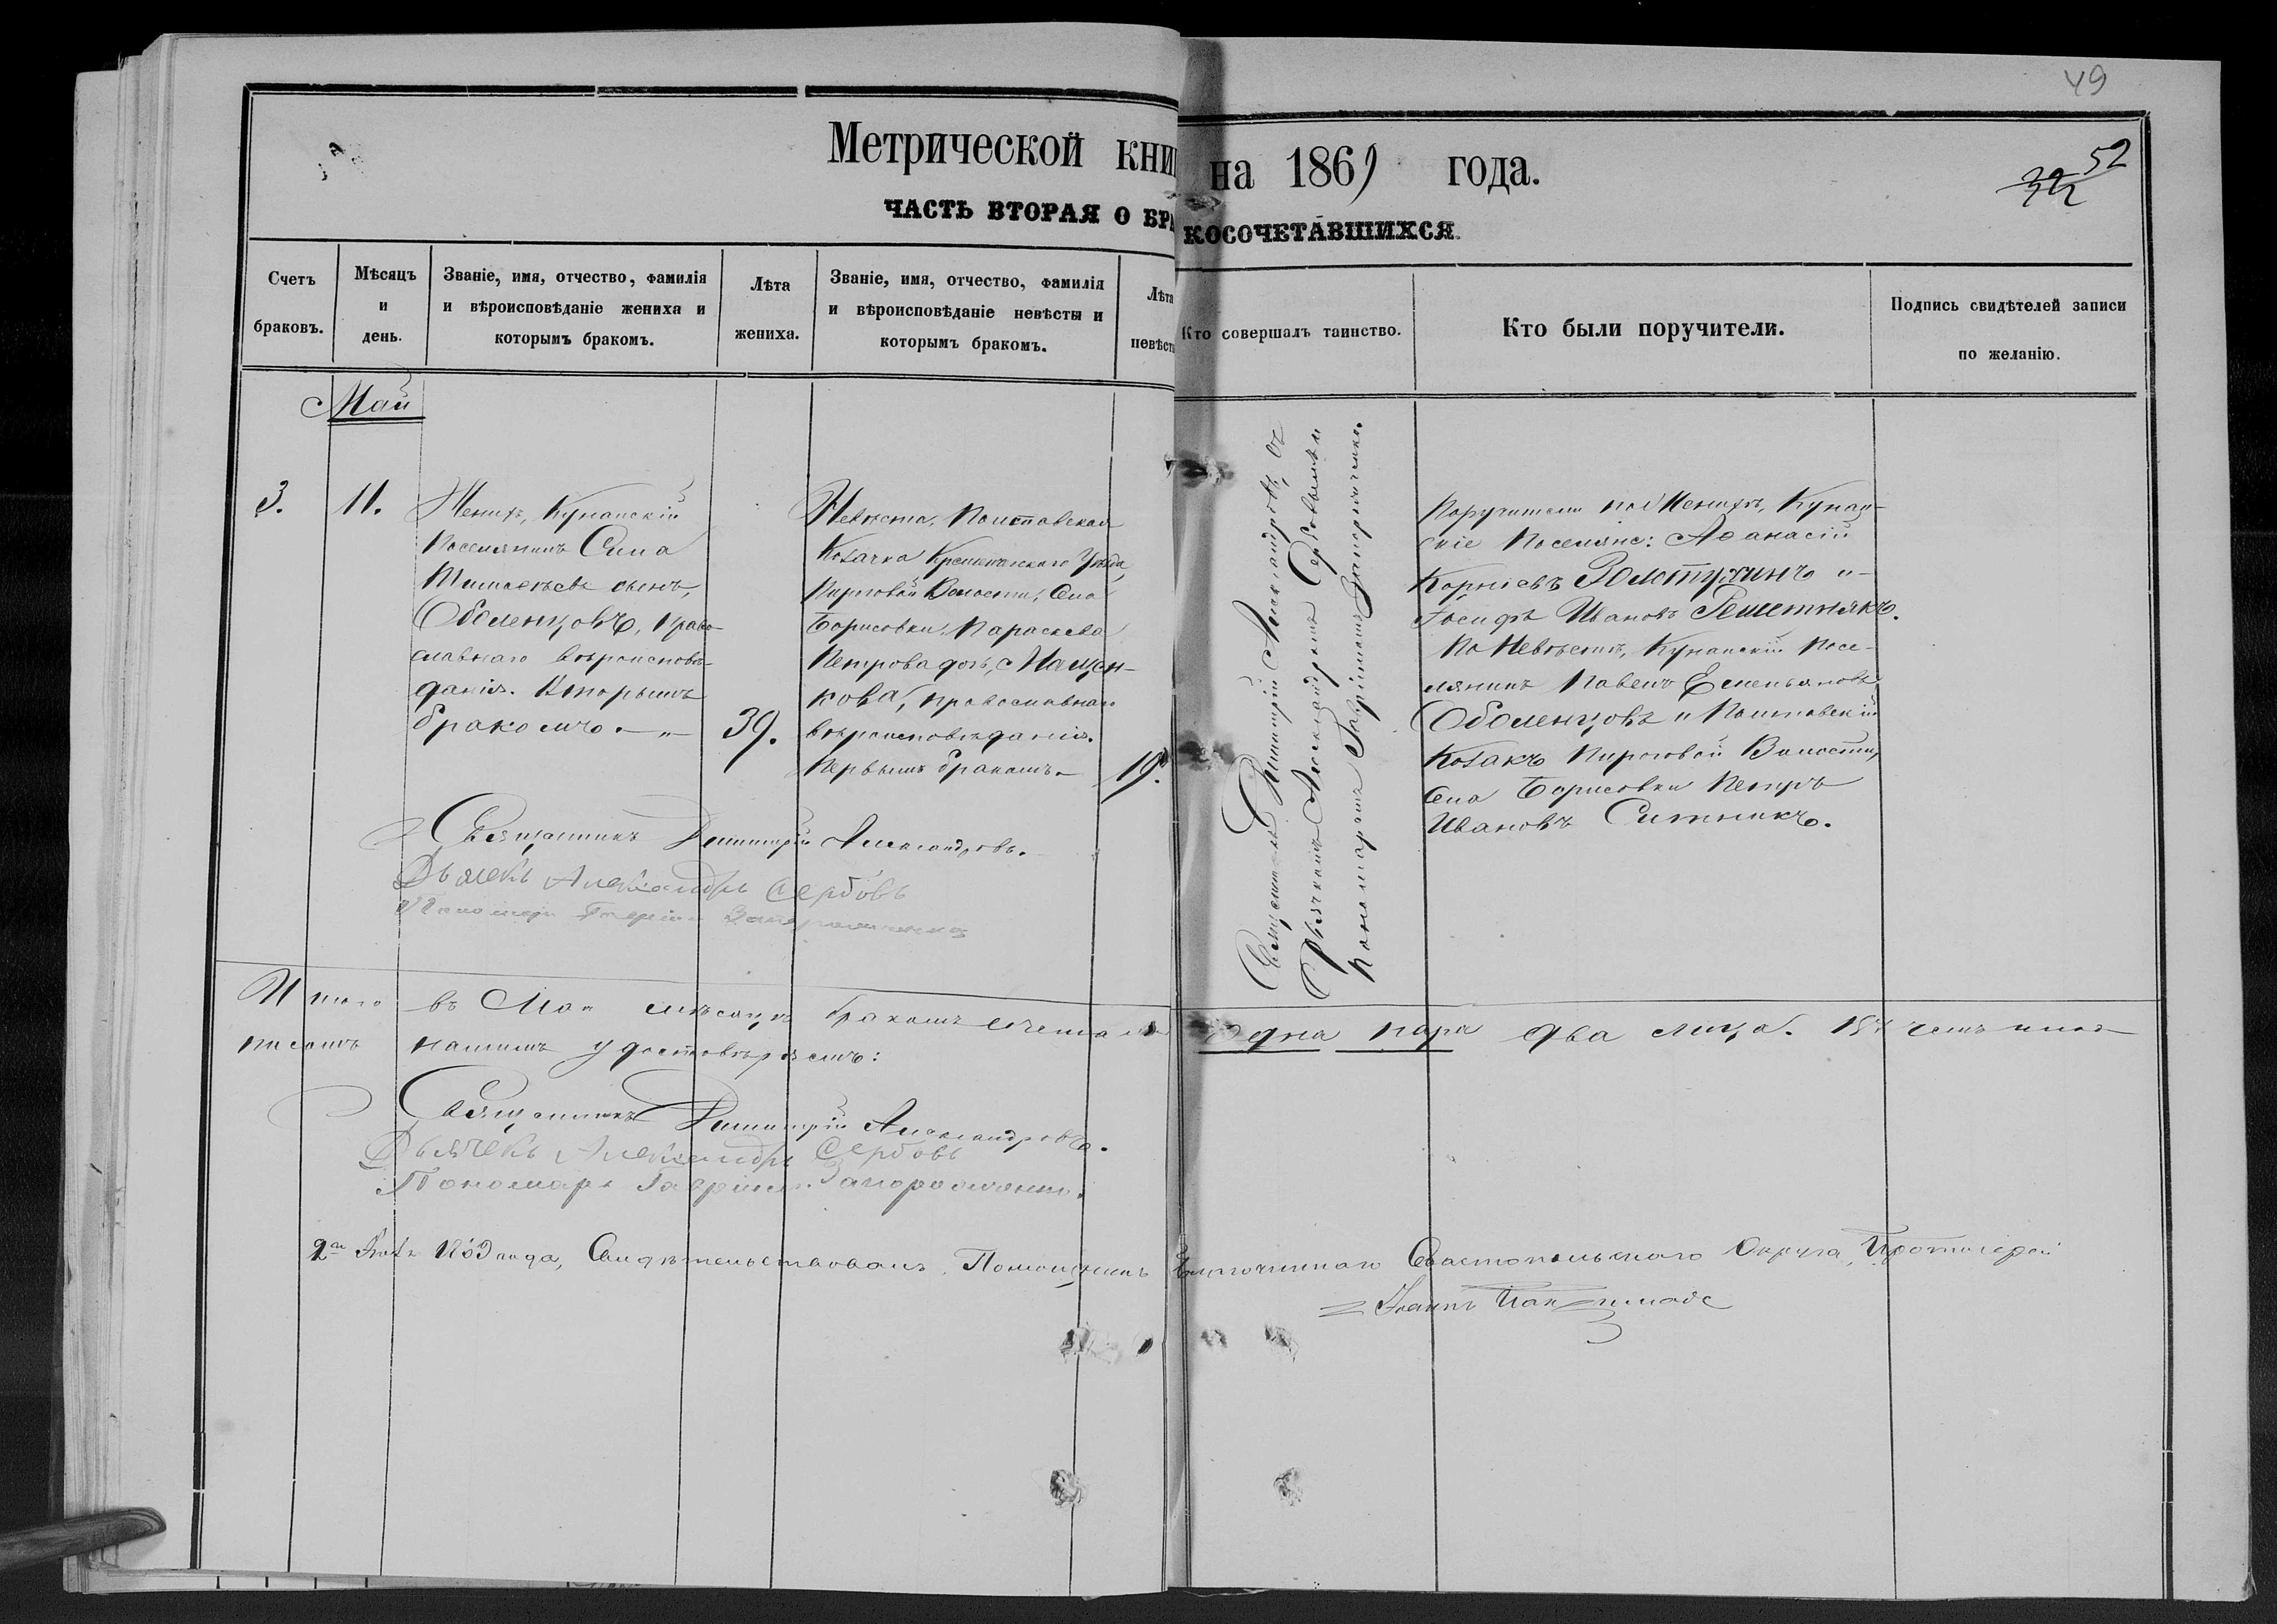 49
52
Метрической кни на 1869 года.
ЧАСТЬ ВТОРАЯ О БРАКОСОЧЕТАВШИХСЯ.
Счетъ браковъ.
Мѣсяцъ и день.
Званіе, имя, отчество, фамилія и вѣроисповѣданіе жениха и которымъ бракомъ.
Лѣта жениха.
Званіе, имя, отчество, фамилія и вѣроисповѣданіе невѣсты и которымъ бракомъ.
Лѣта невѣст
Кто совершалъ таинство.
Кто были поручители.
Подпись свидѣтелей записи по желанію.
Май
3.
11.
Женихъ,
Поселянинъ Сила
сынъ,
Оболенцовъ, право-
славнаго вѣроисповѣ-
данія. Вторымъ
бракомъ.
39.
Невѣста, Полтавская
Козачка Кременчукскаго Уѣзда,
Пироговой Волости, Села
Борисовки, Параскева
Петрова дочь, Мацен-
кова, православнаго
вѣроисповѣданія.
Первымъ бракомъ.
19.
Священникъ Димитрій Александровъ, съ
Дьячкомъ Александромъ Сербовымъ и
Пономаремъ Гавріиломъ Запорожченко.
Поручители по Женихѣ,
скіе поселяне: Аѳанасій
Корніевъ Золотухинъ и
Іосифъ Ивановъ Решетнякъ.
По Невѣстѣ, Посе-
лянинъ Павелъ Емельяновъ
Оболенцовъ и Полтавскій
Козакъ Пироговой Волости,
Села Борисовки Петръ
Ивановъ Ситникъ.
Священникъ Димитрій Александровъ.
Дьячекъ Александръ Сербовъ
Пономарь
Итого въ Маѣ мѣсяцѣ бракомъ одна пара два лица. Въ чемъ
нашимъ удостовѣряемъ:
Священникъ Димитрій Александровъ.
Дьячекъ Александръ Сербовъ
Пономарь Гавріилъ Запорожченко.
2го 1869 года, Свидѣтельствовалъ Помощникъ Благочиннаго Севастопольскаго Округа, Протоіерей
Іоаннъ